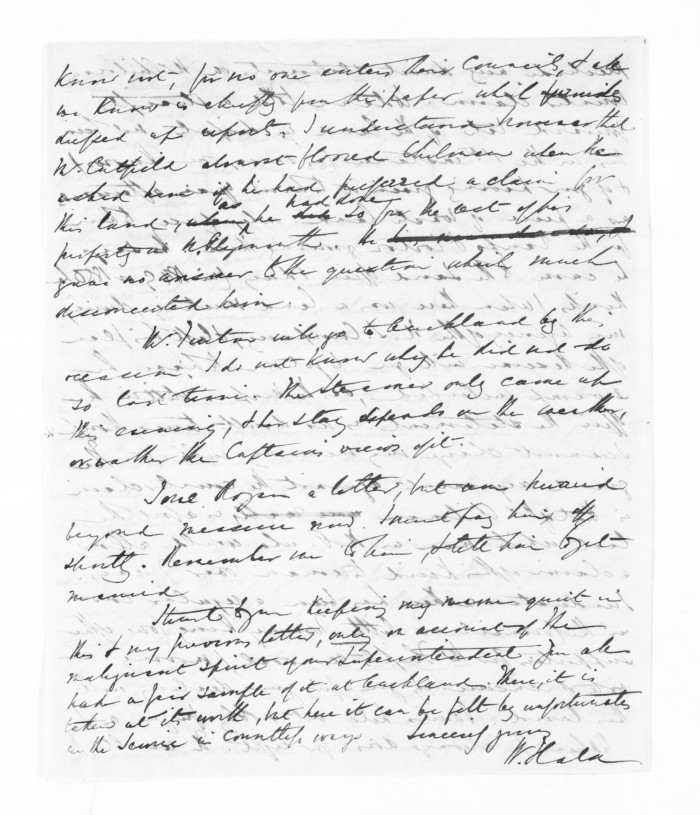 know not, for no one enters their Council, & all
we know is chiefly from the paper which furnishes
dressed up reports. I understand however that
Mr. Catfield almost floored Chilman when he
asked him if he had preferred a claim for
this land, as he had done so for the rest of his
property in N. Plymouth. He
gave no answer to the question which much
disconcerted him.
Mr. will go to Auckland by this
occasion. I do not know why he did not do
so last time. The steamer only came up
this evening, & her stay depends on the weather,
or rather the Captain's views of it.
I owe Rogan a letter, but am hurried
beyond measure now. I must pay him off
shortly. Remember me to him & tell him to get
married
I trust to your keeping my name quiet in
this & my previous letter, only on account of the
malignant spirit of our Superintendent. You all
had a fair sample of it at Auckland. There, it is
taken at its worth, but here it can be felt by unfortunates
in the service in countless ways. Sincerely yours
W. Halse